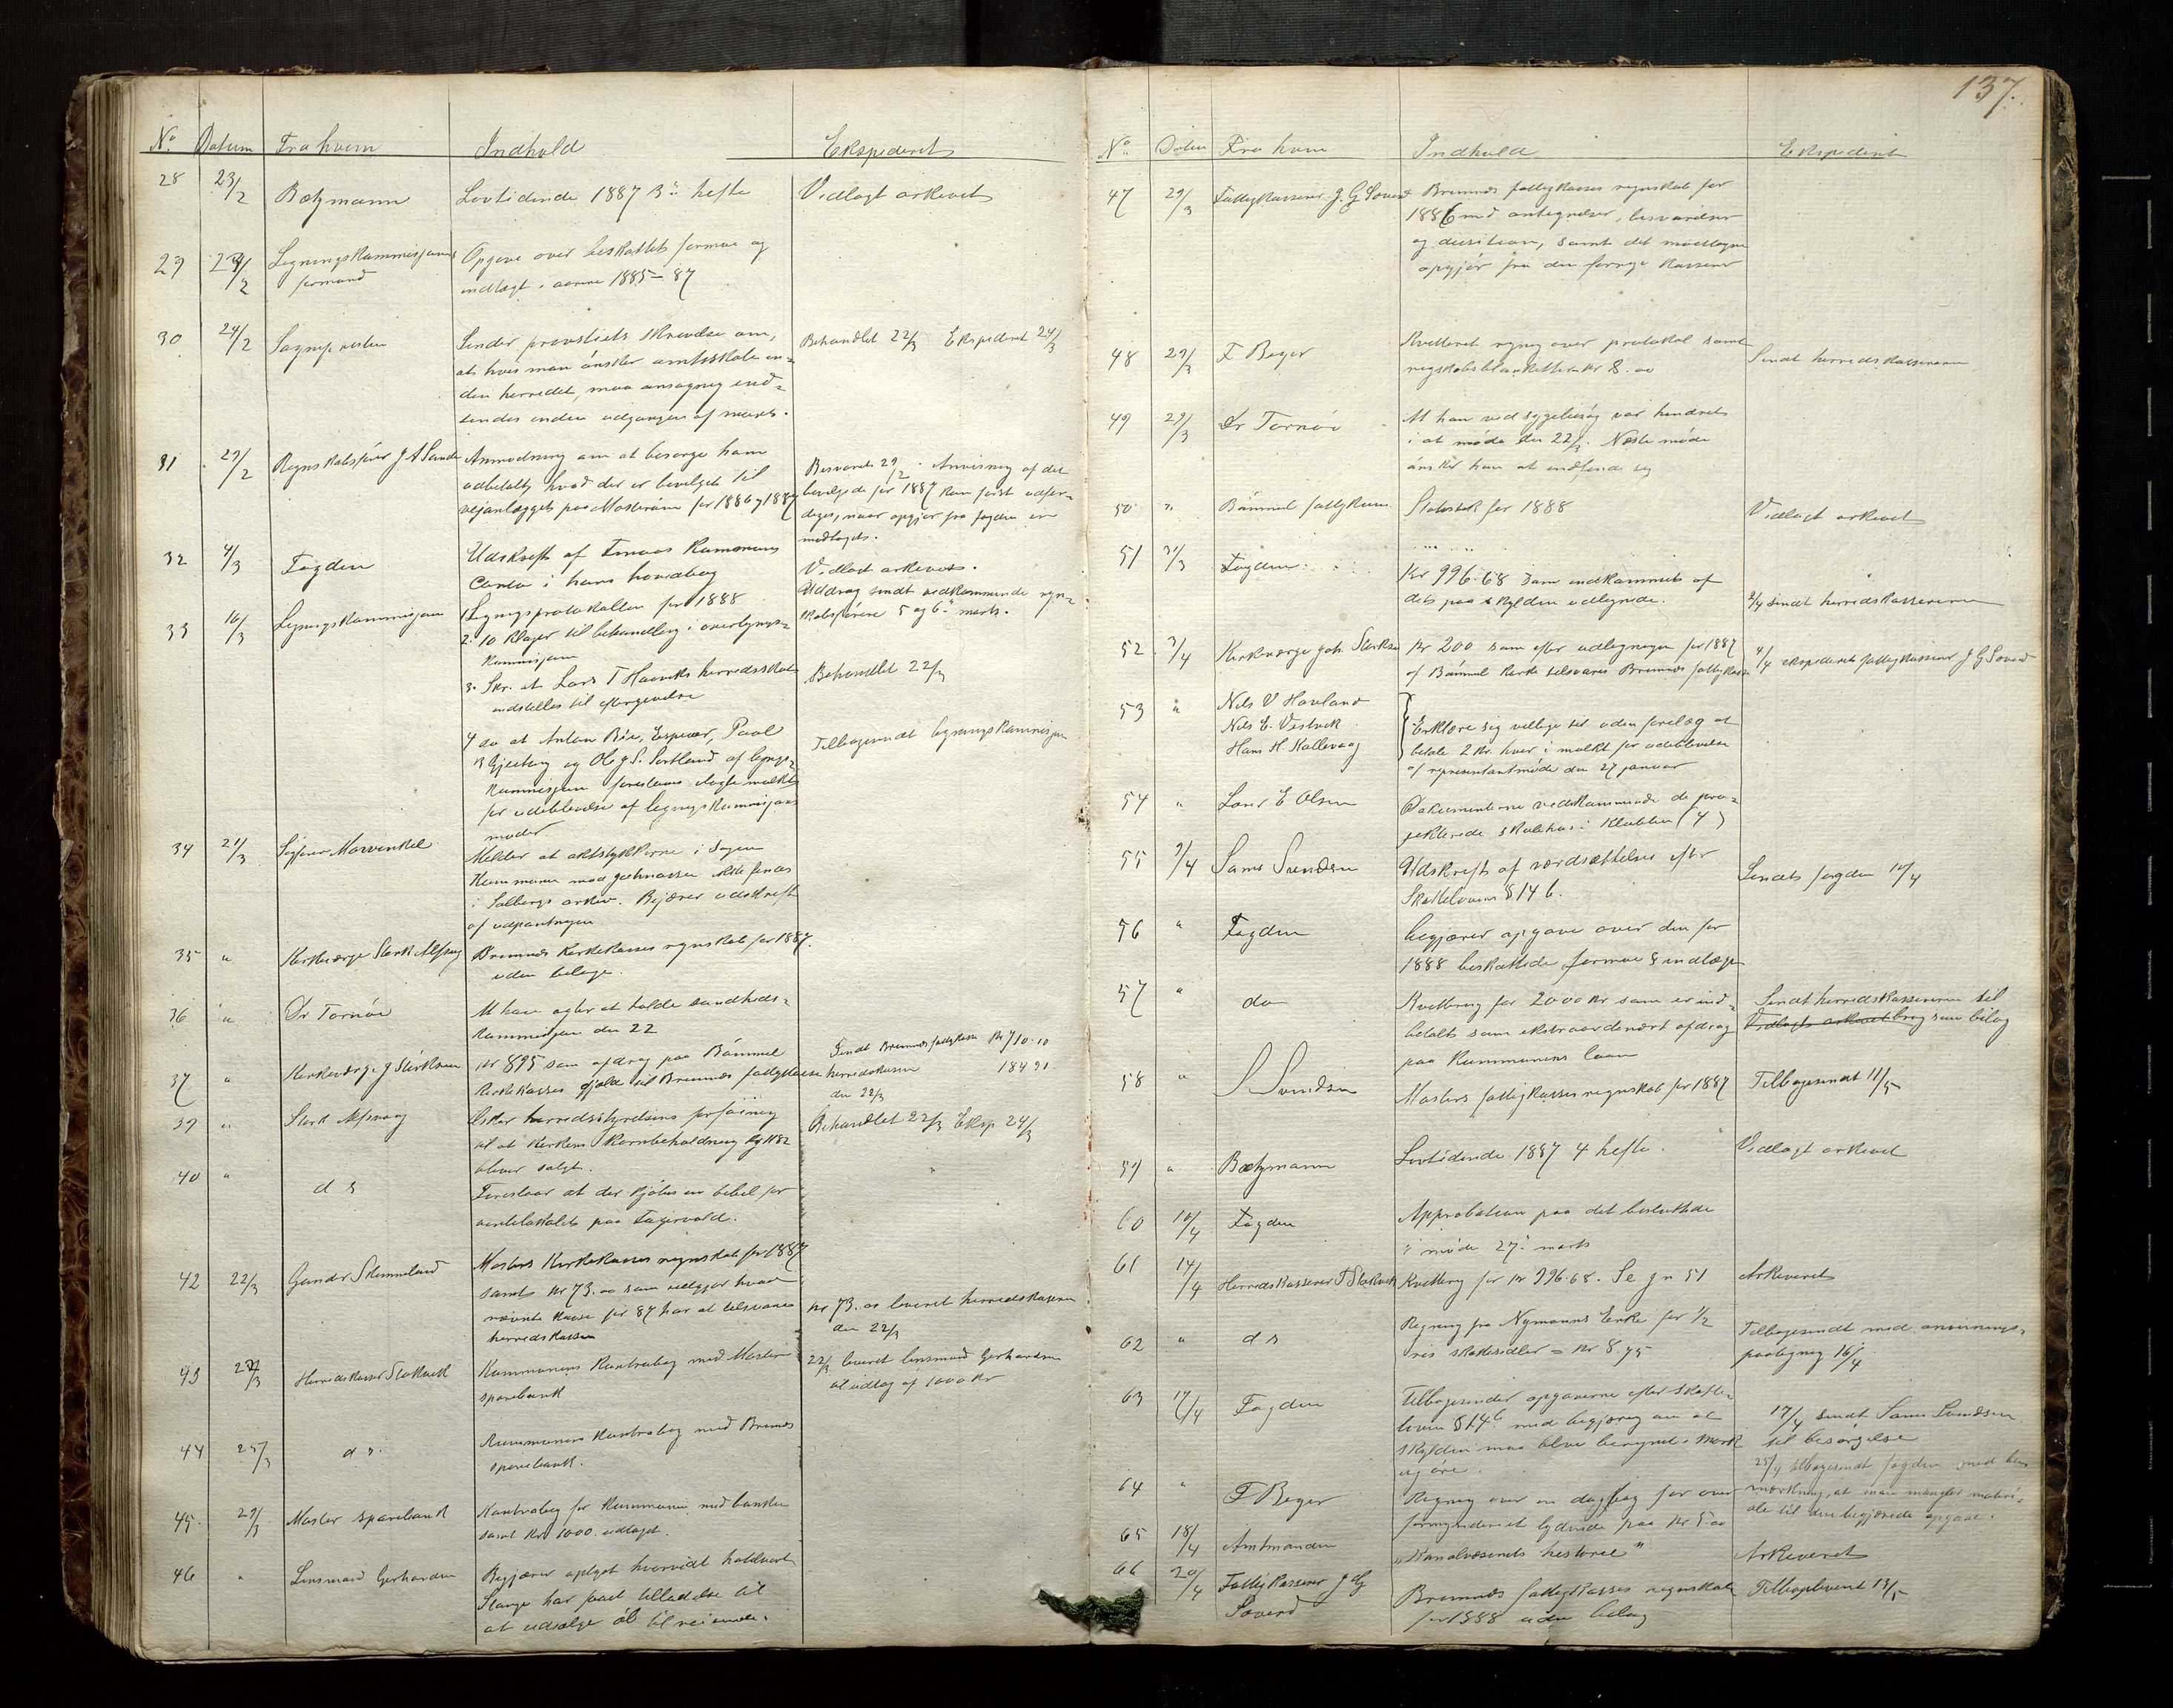 137.
No. Datum Fra hvem Indhold Ekspederet
28 23/2 Bætzmann Lovtidende 1887 3die hefte Vidlagt arkivet
29 23/2 Ligningskommissjonens Opgave over beskattet formue og
formand indtægt i aarene 1885–87
30 24/2 Sognepresten Sender provstiets skrivelse om, Behandlet 22/3 Ekspederet 24/3
at hvis man ønsker amtsskole in-
den herredet, maa ansøgning ind-
sendes inden udgangen af marts.
31 29/2 Regnskabsfører J A Sande Anmodning om at besørge ham Besvaret 29/2. Anvisning af det
udbetalt hvad der er bevilget til bevilgede for 1887 kan først udfær-
vejanlægget paa Mosterøen for 1886 og 1887 diges, naar opgjør fra fogden er
modtaget.
32 4/3 Fogden Udskrift af Finnaas kommunes Vidlagt arkivet.
Conto i hans hovedbog
33 16/3 Ligningskommisjonen 1. Ligningsprotokollen for 1888 Uddrag sendt vedkommende regn-
2. 10 klager til behandling i overlignings- skabsførere 5 og 6te marts.
kommisjonen
3. Skr. at Lars T Haaviks herredsskat Behandlet 22/3
indstilles til eftergivelse
4 do at Anton Bøe, Espevær, Paul Tilbagesendt ligningskommisjonen
B Gjerberg og Ole J. S. Sortland af lignings-
kommisjonen foreslaaes ilagte mulkt
for udeblivelse af ligningskommisjonens
møder
34 21/3 Sagfører Mowinkel Melder at aktstykkerne i sagen
Kommunen mod Johnassen ikke findes
i Solbergs arkiv. Begjærer udskrift
af udpantningen
35 " Kirkeværge Størk Alfsvaag Bremnes kirkekasses regnskab for 1887.
uden bilage.
36 " Dr Tornøe At han agter at holde sundheds-
kommisjon den 22
37 " Kirkeværge J Størksen Kr 895 som afdrag paa Bømmel Sendt Bremnes fattigkasse Kr 710.10
kirkekasses gjæld til Bremnes fattigkasse herredskassen 184 90.
den 22/3
39 " Størk Alfsvaag Æsker herredsstyrelsens forføining Behandlet 22/3 Eksp 24/3
til at kirkens kornbeholdning
bliver solgt.
40 " d s Foreslaar at der kjøbes en bibel for "
paa Fagervold.
42 22/3 Gunder Skimmeland Mosters kirkekasses regnskab for 1887
samt Kr 73.00 som udgjør hvad Kr 73.00 leveret herredskasseren
nævnte kasse for 87 har at tilsvare den 22/3
herredskassen
43 22/3 Herredskasser Stokvik Kommunens kontrabog med Moster 22/3 leveret lensmand Gerhardsen
sparebank til udtag af 1000 Kr
44 25/3 d s. Kommunens kontrabog med Bremnes
sparebank.
45. 29/3 Moster sparebank Kontrabog for kommunen med banken
samt Kr 1000. udtaget.
46 " Lensmand Gerhardsen Begjærer oplyst hvorvidt
Stange har faaet tilladelse til
at udsælge øl til reisende.
No. Datum Fra hvem Indhold Ekspederet
47 29/3 Fattigkasserer J. G Søverd Bremnes fattigkasses regnskab for
1886 med antegnelser, besvarelser
og decision, samt det modtagne
opgjør fra den forrige kasserer
48 29/3 F Beyer Kvitteret regning over protokol samt Sendt herredskassereren
regnskabsblanketter Kr 8.00
49 29/3 Dr Tornøe At han ved sygebesøg var hindret
i at møde den 22/3. Næste møde
ønsker han at indfinde sig
50 " Bømmel fattigkom. Statistik for 1888 Vidlagt arkivet
51 31/3 Fogden Kr 996.68 som indkommet af
det paa skylden udlignede. 2/4 sendt herredskassereren
52 3/4 Kirkeværge Joh. Størksen Kr 200 som efter udligningen for 1887 4/4 ekspederet fattigkasserer J G Søverd
af Bømmel kirke tilsvares Bremnes fattigkasse
53 " Nils V Hovland
Nils E. Vestvik Erklærer sig villige til uden forelæg at
Hans H. Kallevaag betale 2 Kr. hver i mulkt for udeblivelse
af representantmøde den 27 januar
54 " Lars E Olsen Dokumenterne vedkommende de pro-
jekterede skolehus i Klubben (4)
55 9/4 Sams Svendsen Udskrift af værdsættelse efter Sendt fogden 10/4
Skattelovens § 14 b.
56 " Fogden Begjærer opgave over den for
1888 beskattede formue & indtægt
57 " do Kvittering for 2000 Kr som er ind- Sendt herredskassereren til
betalt som ekstraordinært afdrag Vidlagt arkivet brug som bilag
paa kommunens laan
58 " S Svendsen Mosters fattigkasses regnskab for 1887 Tilbagesendt 11/5
59 " Bætzmann Lovtidende 1887 4 hefte. Vidlagt arkivet
60 10/4 Fogden Approbation paa det besluttede
i møde 27de marts
61 14/4 Herredskasserer T Stokvik Kvittering for Kr 996.68. Se Jr 51 Arkiveret
62 " d s Regning fra Nymanns Enke for 1/2 Tilbagesendt med anvisnings-
ris skattesedler = Kr 8.75 paategning 16/4
63 17/4 Fogden Tilbagesender opgaverne efter skatte-
loven § 14 b med begjæring om at 17/4 sendt Sams Svendsen
skylden maa blive beregnet i mark til besørgelse
og øre. 25/4 tilbagesendt fogden med be-
64 " F Beyer Regning over en dagbog for over- mærkning, at man mangler materi-
formynderiet lydende paa Kr 5.00 ale til den begjærede opgave.
65 18/4 Amtmanden "Kanalvæsenets historie" Arkiveret
66 20/4 Fattigkasserer J G Bremnes fattigkasses regnskab Tilbageleveret 13/5
Søverd for 1888 uden bilag